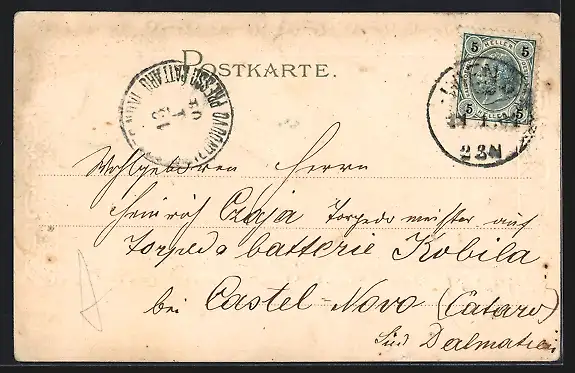 POSTKARTE.
5 HELLER 5
5 HELLER 5
WIEN
2 3N
PRESSO CATTARO
13
Wohlgeboren Herrn
Heinrich Czaja Torpedomeister auf
Torpedobatterie Kobila
bei Castel-Novo (Cataro)
Süd Dalmatien